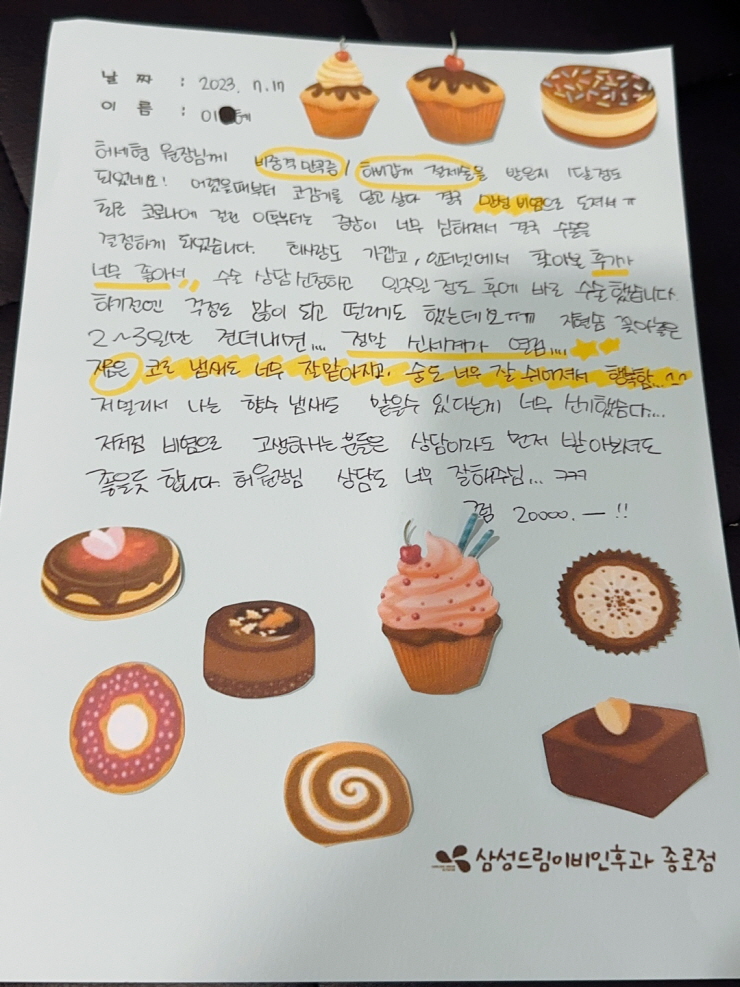 날 짜 : 2023. 7. 17
이 름 : 이
허세형 원장님께 비중격 만곡증/ 하비갑개 절제술을 받은지 1달정도
되었네요! 어렸을때부터 코감기를 달고 살다 결국 만성 비염으로 도져서 ㅠ
최근 코로나에 걸린 이후부터는 증상이 너무 심해져서 결국 수술을
결정하게 되었습니다. 회사랑도 가깝고, 인터넷에서 찾아본 후기가
너무 좋아서,, 수술 상담 신청하고 일주일 정도 후에 바로 수술했습니다.
하기전엔 걱정도 많이 되고 떨리기도 했는데요ㅠㅠ 지혈솜 꽂아놓은
2~3일만 견뎌내면.... 정말 신세계가 열림....
지금은 코로 냄새도 너무 잘맡아지고, 숨도 너무 잘 쉬어져서 행복함...^^
저멀리서 나는 향수 냄새도 맡을수 있다는게 너무 신기했습다...
저처럼 비염으로 고생하시는 분들은 상담이라도 먼저 받아보셔도
좋을듯 합니다. 허원장님 상담도 너무 잘해주심... ㅋㅋㅋ
20000. — !!
삼성드림이비인후과 종로점